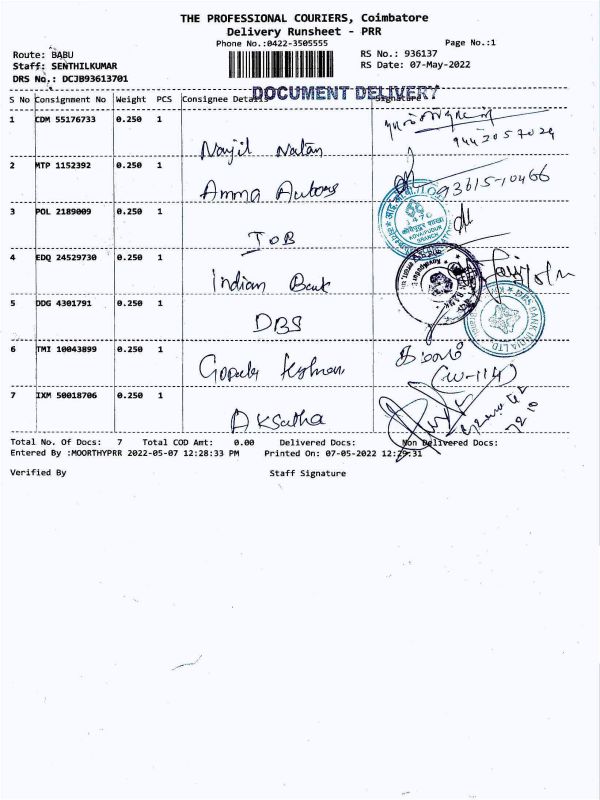 THE PROFESSIONAL COURIERS, Coimbatore
Delivery Runsheet - PRR
Phone No.:0422-3505555
Page No.:1
Route: BABU
RS No.: 936137
Staff: SENTHILKUMAR
RS Date: 07-May-2022
DRS No.: DCJB93613701
DOCUMENT DELIVERY
S No Consignment No Weight PCS Consignee Details Signature
1 CDM 55176733 0.250 1
Natan
2 MTP 1152392 0.250 1
Amma 93615-10466
3 POL 2189009 0.250 1
IOB
4 EDQ 24529730 0.250 1
Indian Bank
5 DDG 4301791 0.250 1
DBS
6 TMI 10043899 0.250 1
(W-114)
7 IXM 50018706 0.250 1
Total No. Of Docs: 7 Total COD Amt: 0.00 Delivered Docs: Non Delivered Docs:
Entered By :MOORTHYPRR 2022-05-07 12:28:33 PM Printed On: 07-05-2022 12:29:31
Verified By Staff Signature